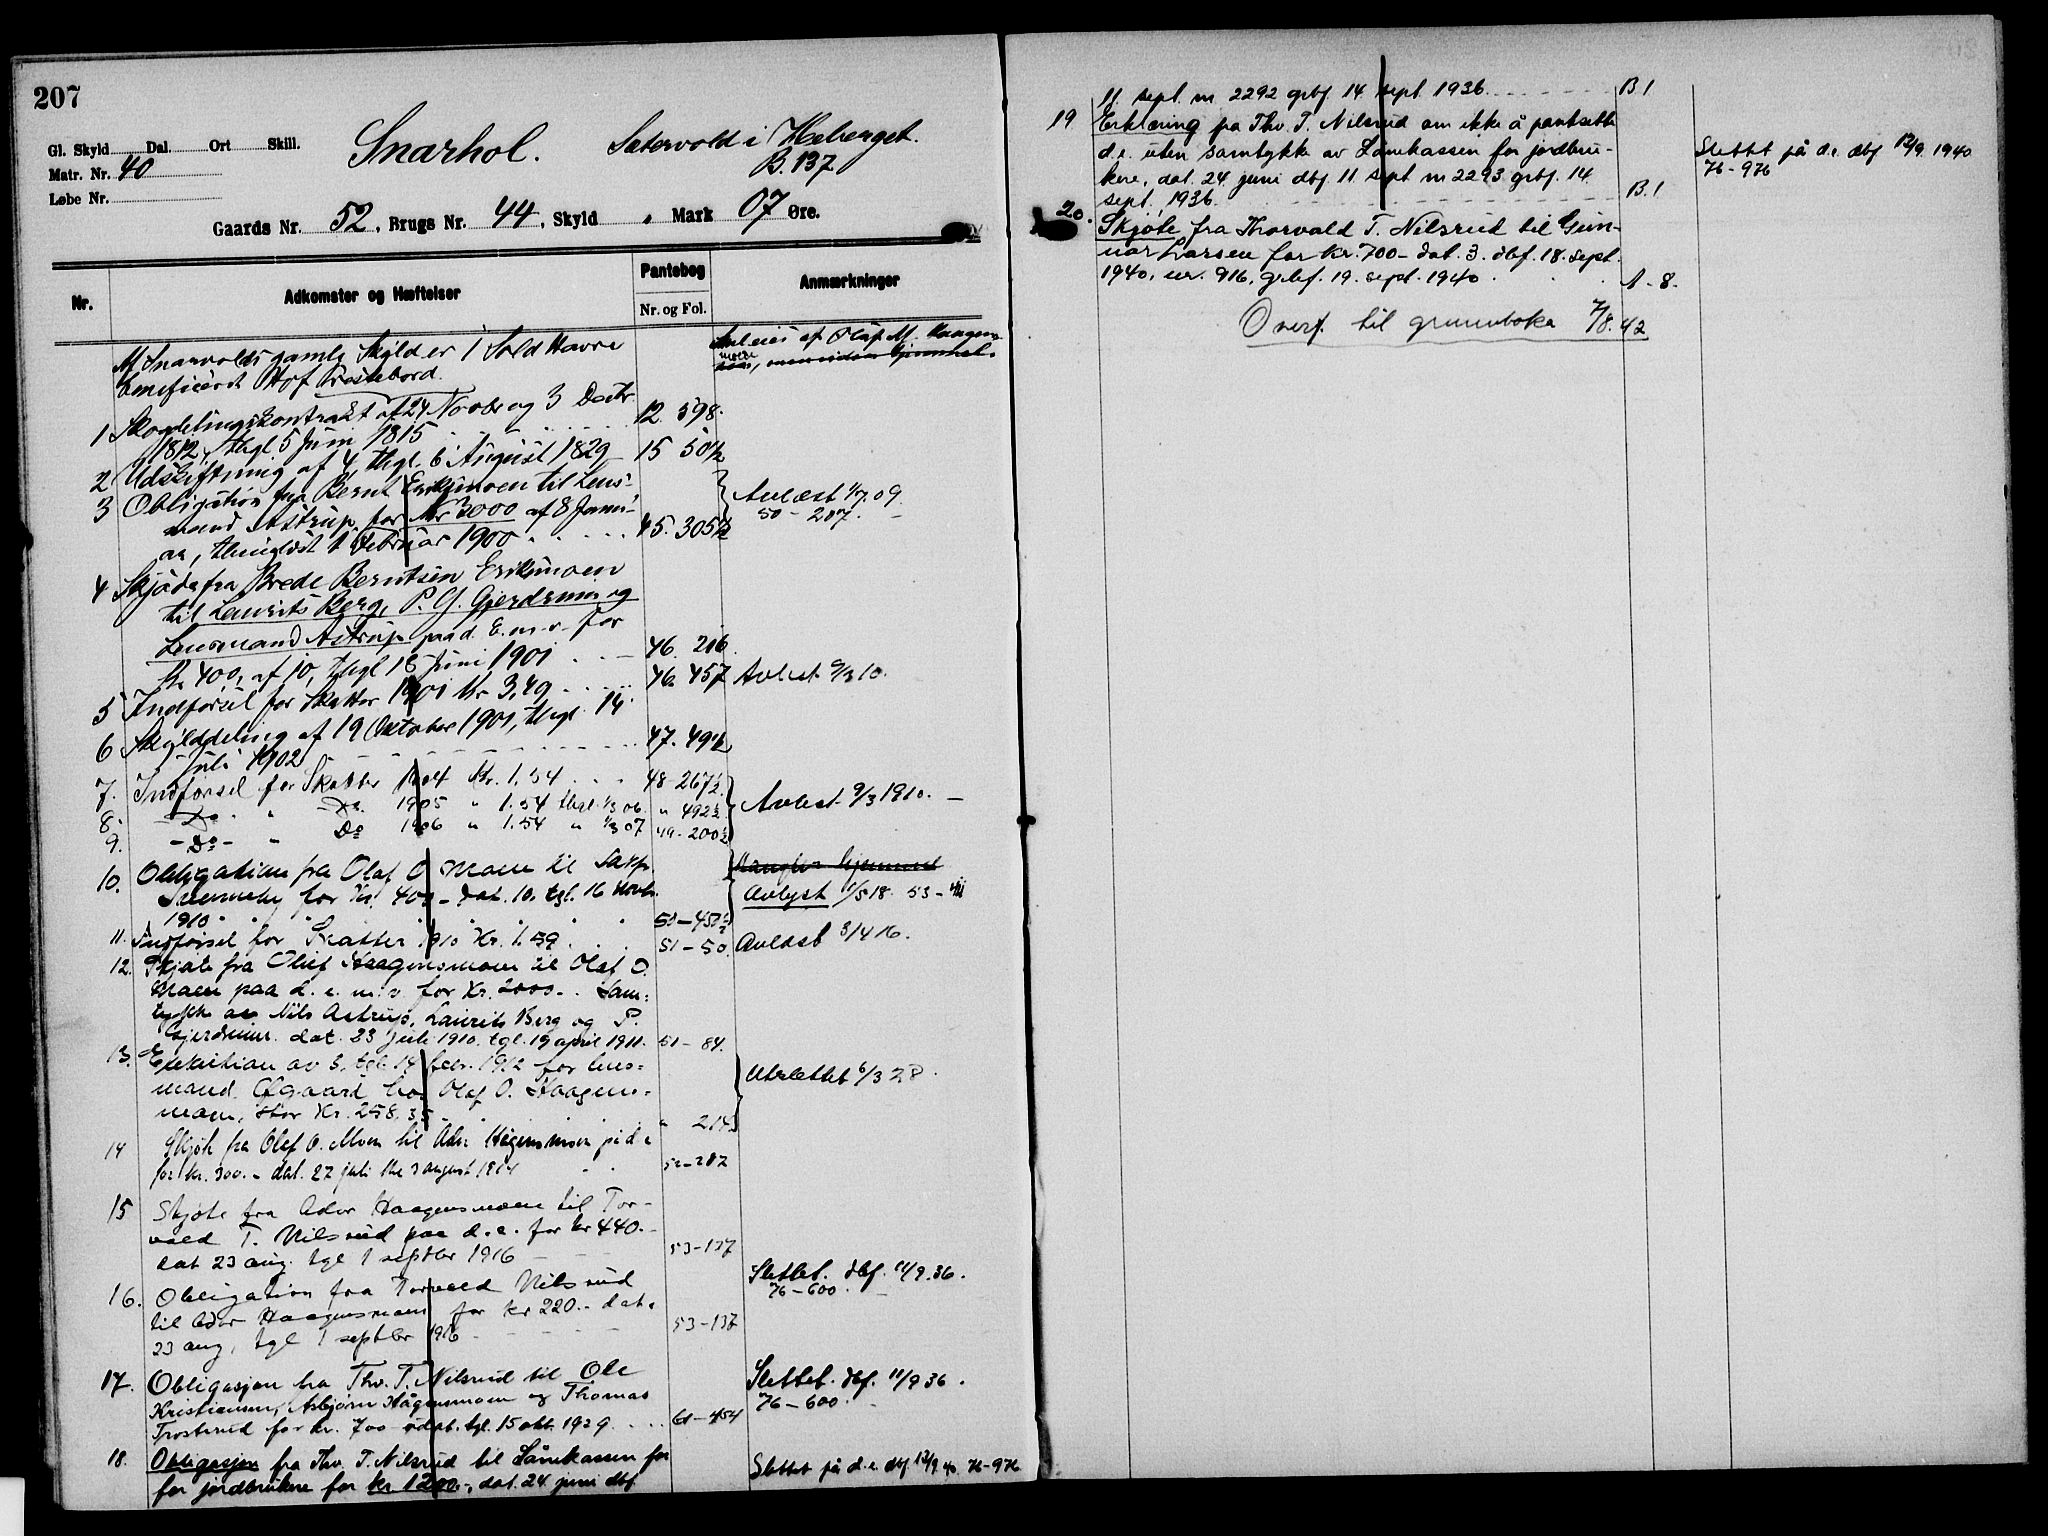 207
Gl. Skyld Dal. Ort Skill.
Matr. Nr. 40
Løbe Nr.
Snarhol. Sætervold i Heberget.
B. 137
Gaards Nr. 52, Brugs Nr. 44, Skyld , Mark 07 Øre.
Nr. Adkomster og Hæftelser Pantebog Nr. og Fol. Anmærkninger
Af Snarvolds gamle Skyld er 1 Sold Havre
beneficeret Hof Prestebord.
Anleies af Olaf M. Haagens-
moen,
1 Skogdelingskontrakt af 24 Novbr og 3 Decbr 12. 598.
1812, thgl 5 Juni 1815
2 Udskiftning af 4, thgl. 6 August 1829 15 50½
3 Obligation fra Bernt Eriksmoen til Lens-
mand Astrup for Kr 3000 af 8 Janu-
ar, thinglæst 1 Februar 1900 45. 305½
Avlæst 1/7 09.
50 - 207.
4 Skjøde fra Brede Berntsen Eriksmoen
til Laurits Berg, P. G. Gjerdrum og
Lensmand Astrup paa d. E. m. v. for
Kr 400, af 10, thgl 18 Juni 1901 46. 216.
5 Indførsel for Skatter 1901 Kr 3,49 46. 457 Avlæst 9/3 10.
6 Skylddeling af 19 Oktober 1901, thgl. 14.
Juli 1902 47. 49½
7. Indførsel for Skatter 1904 Kr. 1.54 48-267½
8. - Do - " Do 1905 " 1.54 thgl. 1/3 06. " 492½
9. - Do - " Do 1906 " 1.54 " 1/3 07 49-200½
Avlæst 9/3 1910.
10. Obligation fra Olaf O. Moen til Sakf.
for Kr. 400 - dat. 10, tgl. 16 Novbr.
1910 50-450½
Mangler hjemmel
Avlyst 1/5 18. 53-411
11. Indførsel for Skatter 1910 Kr. 1.59 51-50 Avlæst 3/4 16.
12. Skjøte fra Oluf Haagensmoen til Olaf O.
Moen paa d. e. m. v for Kr. 2000 -. Sam-
tykke av Nils Astrup, Laurits Berg og P.
Gjerdrum. dat. 23 juli 1910. tgl. 19 april 1911. 51-84.
13. Exekution av 5, tgl. 14 febr. 1912 for lens-
mand Ofgaard hos Olaf O. Haagens-
moen, stor Kr. 258,35 " 214.
Utslettet 6/3 28.
14 Skjøte fra Olaf O. Moen til Ador Hagensmoen på d e
for kr. 300.- dat. 27 juli tgl 3 august 1914 52-287
15 Skjøte fra Ador Haagensmoen til Tor-
vald T. Nilsrud paa d. e. for kr 440.-
dat 23 aug. tgl 1 septbr 1916 53-137
16. Obligation fra Torvald Nilsrud
til Ador Haagensmoen for kr 220.- dat.
23 aug, tgl 1 septbr 1916 53-137
Slettet. dbf. 11/9.36.
76-600.
17. Obligasjon fra Thv. T. Nilsrud til Ole
Kristiansen, Asbjørn Hågensmoen og Thomas
Trosterud for kr. 700 udat. tgl. 15 okt. 1929. 61-454
Slettet. dbf. 11/9 36.
76-600.
18. Obligasjon fra Thv. T. Nilsrud til Lånekassen for
for jordbrukere for kr 1200.-, dat. 24 juni dbf
Slettet på d. e. dbf 12/9 40 76-976
11. sept. nr 2292 grbf. 14. sept. 1936. B 1
19 Erklæring fra Thv. T. Nilsrud om ikke å pantsette
d. e. uten samtykke av Lånekassen for jordbru-
kere, dat. 24 juni dbf 11 sept nr 2293 grbf. 14.
sept. 1936. B. 1
Slettet på d. e. dbf 12/9 1940
76-976
20. Skjøte fra Thorvald T. Nilsrud til Gun-
nar Larsen for kr. 700 - dat. 3. dbf. 18. sept.
1940, nr. 916, grbf. 19. sept. 1940. A-8.
Overf. til grunnboka 7/8.42